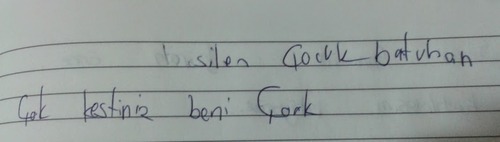 silen Çocuk batuhan
Çok kestiniz beni Çook